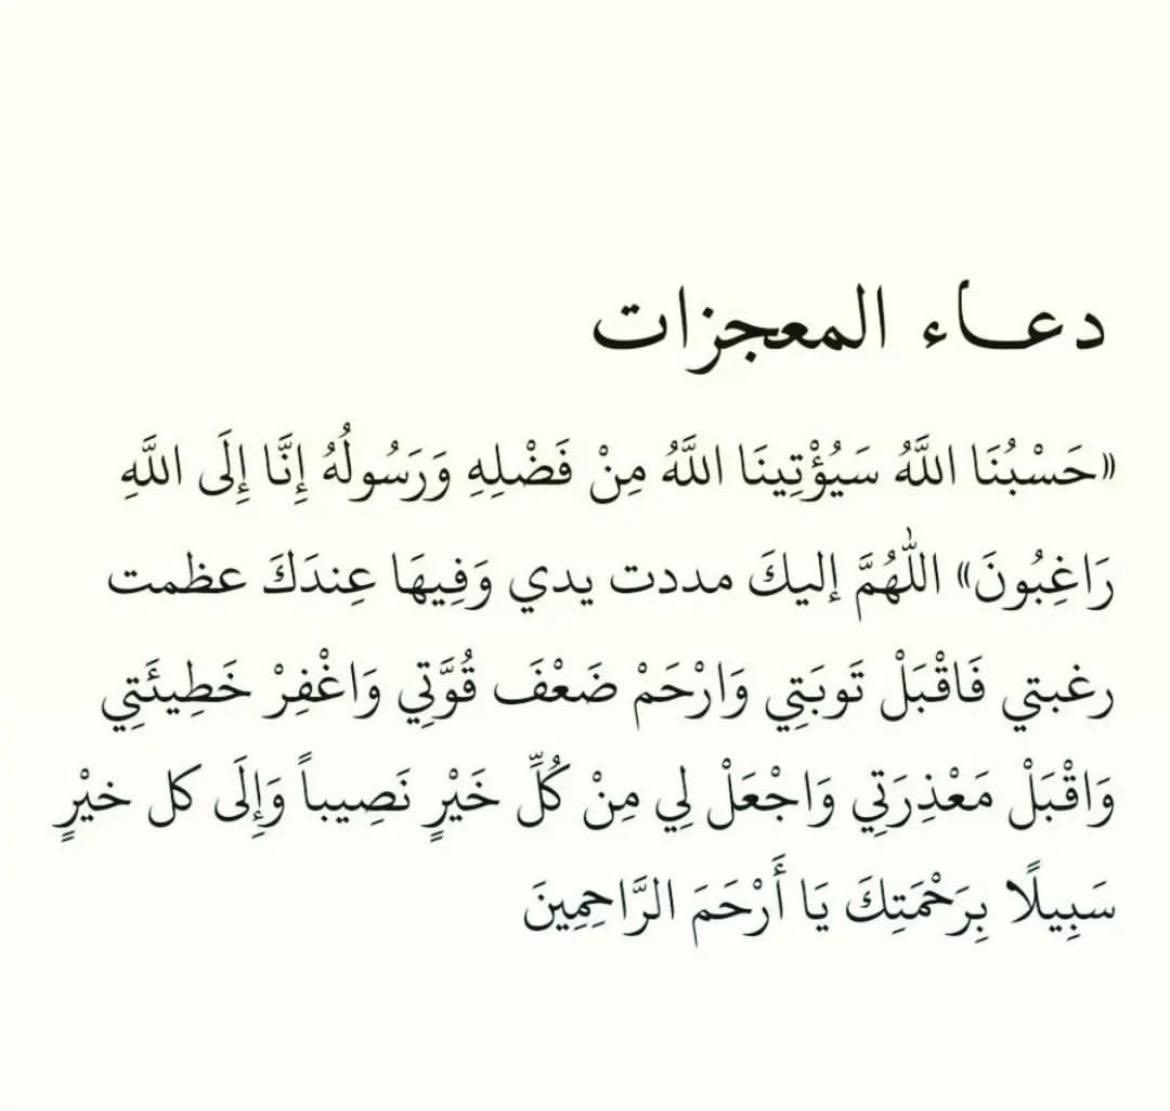 دعاء المعجزات
«حَسْبُنَا اللَّهُ سَيُؤْتِينَا اللَّهُ مِنْ فَضْلِهِ وَرَسُولُهُ إِنَّا إِلَى اللَّهِ
رَاغِبُونَ» اللَّهُمَّ إليكَ مددت يدي وَفِيهَا عِندَكَ عظمت
رغبتي فَاقْبَلْ تَوبَتِي وَارْحَمْ ضَعْفَ قُوَّتِي وَاغْفِرْ خَطِيئَتِي
وَاقْبَلْ مَعْذِرَتِي وَاجْعَلْ لِي مِنْ كُلِّ خَيْرٍ نَصِيباً وَإِلَى كل خيْرٍ
سَبِيلًا بِرَحْمَتِكَ يَا أَرْحَمَ الرَّاحِمِينَ